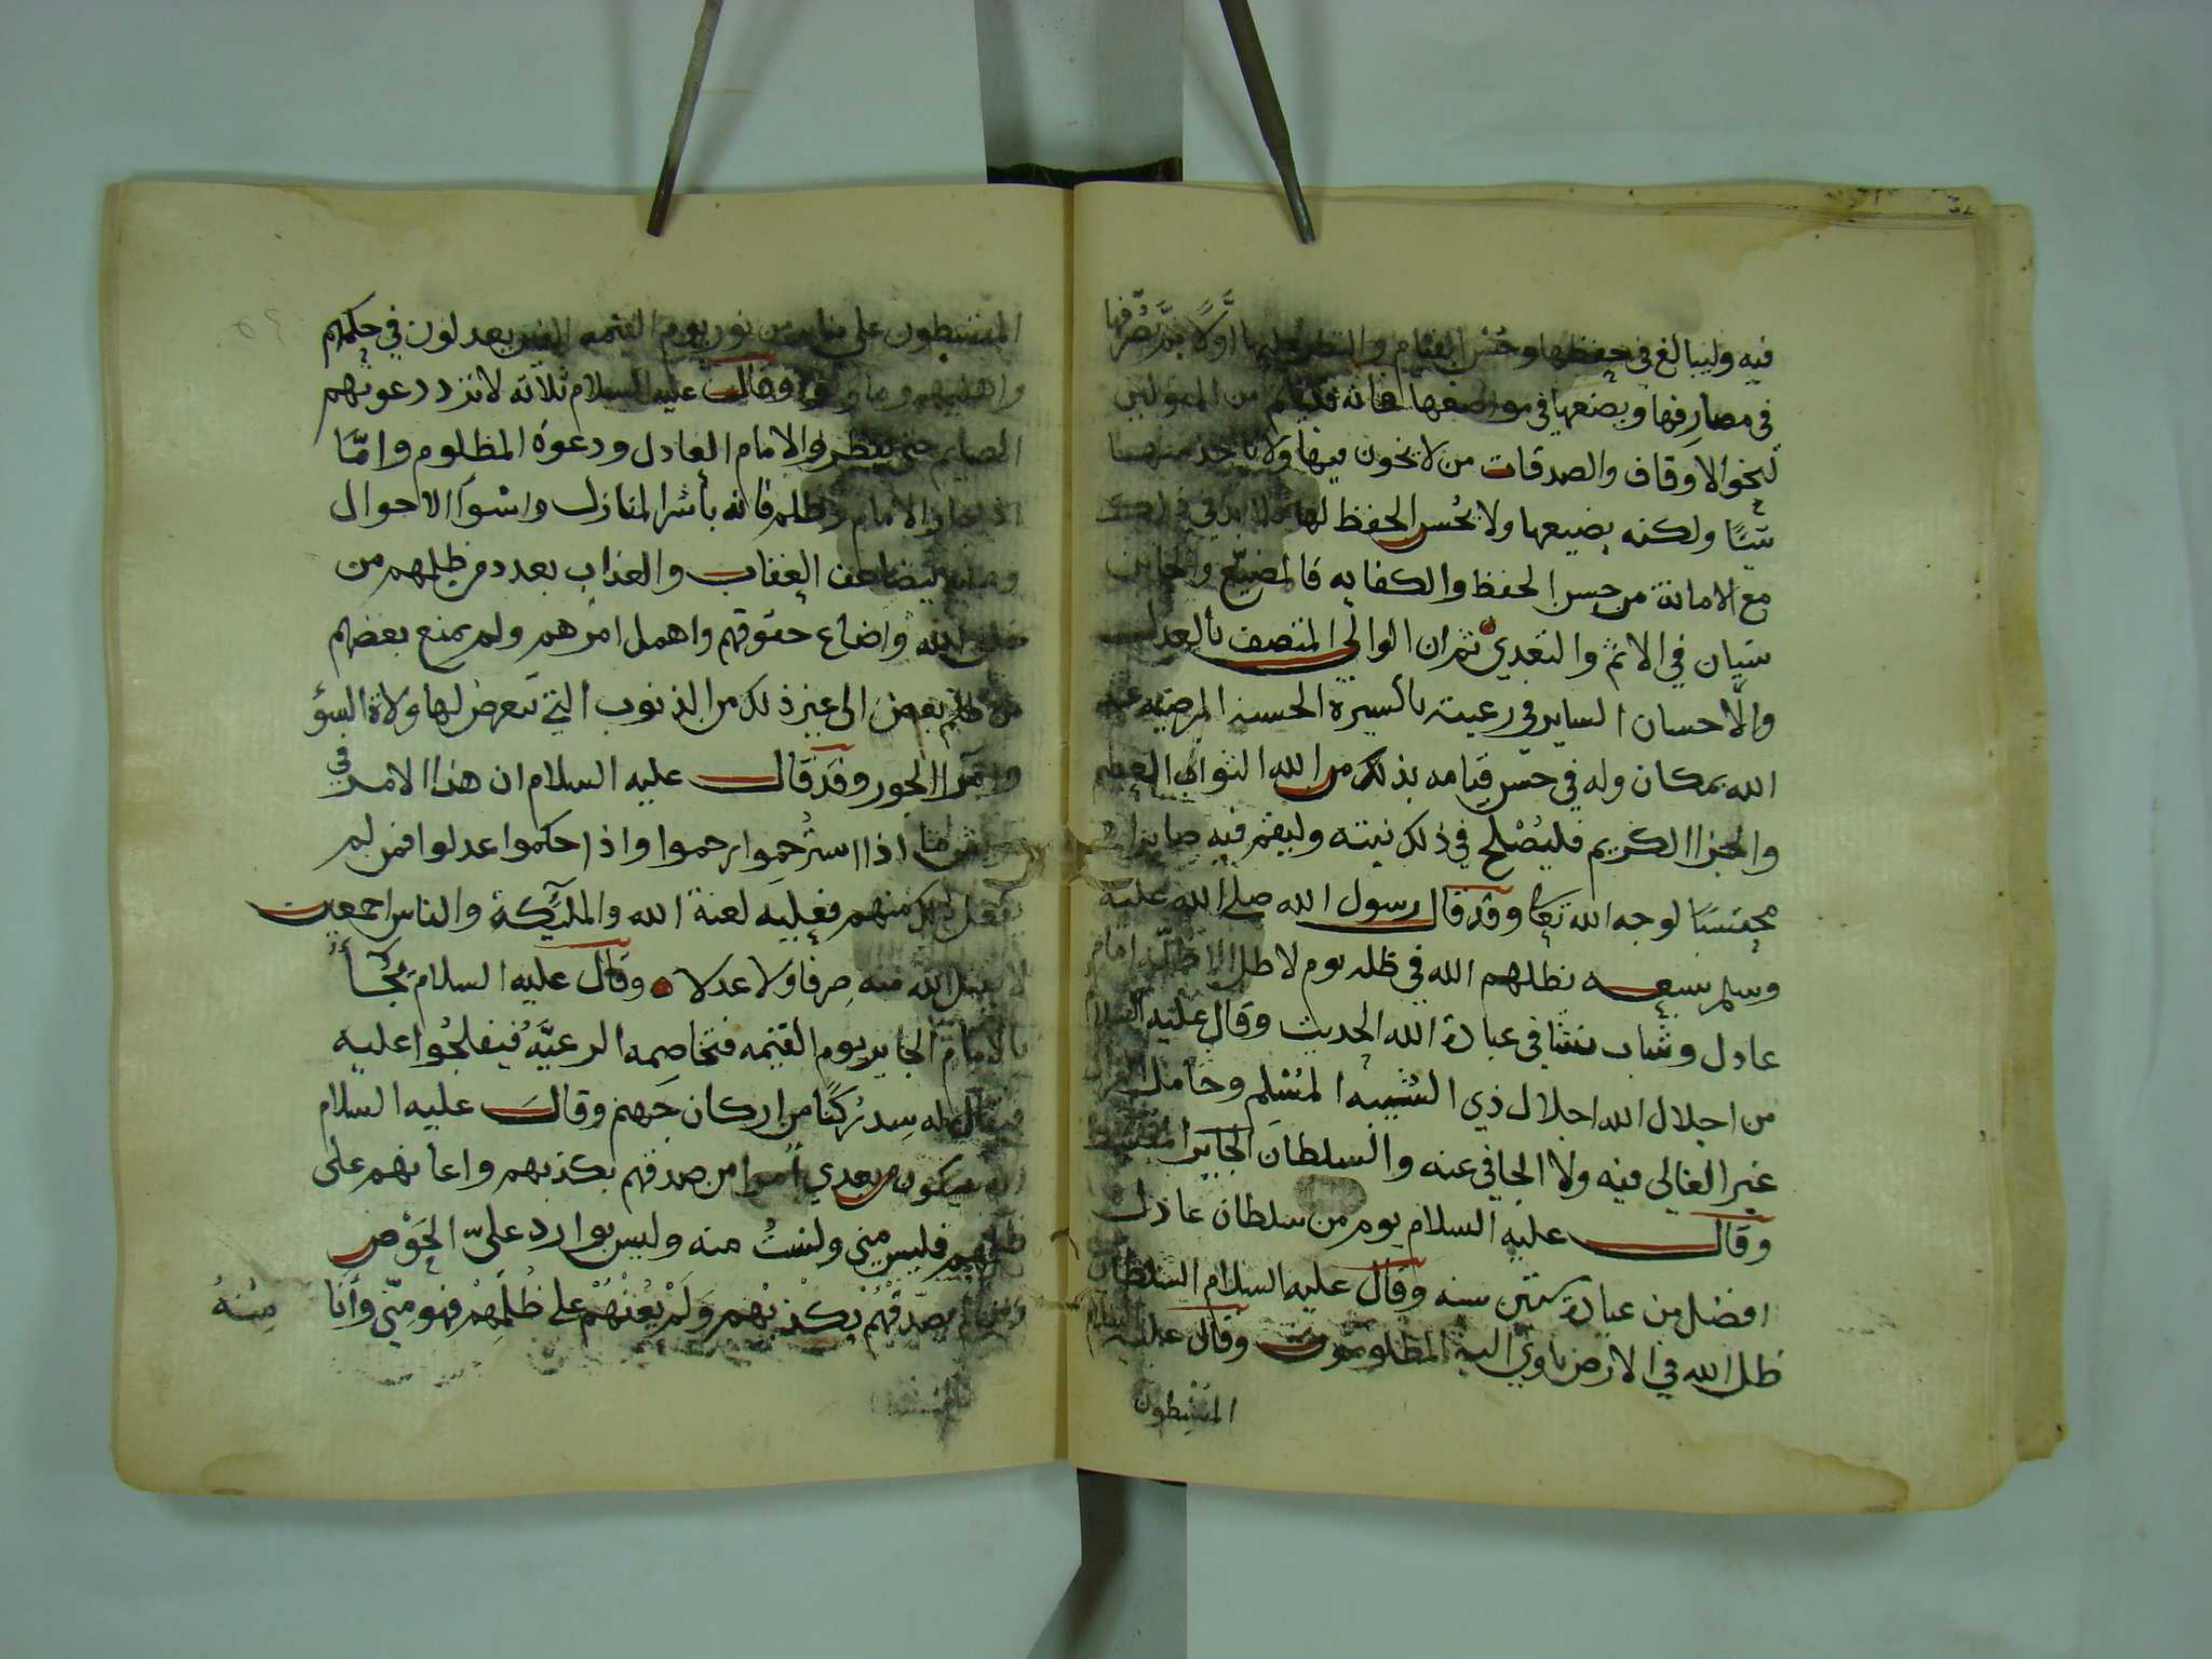 فيه وليبالغ في حفظها وحسن القيام والنظر عليها اولا ثم تصرفها
في مصارفها ويضعها في مواضعها فانه قد يقام من المتولين
لنحو الاوقاف والصدقات من لا يخون فيها ولا ياخذ منها
شيئا ولكنه يضيعها ولا يحسن الحفظ لها فلا بد
مع الامانة من حسن الحفظ والكفايه فالمضيع والخاين
سيان في الاثم والتعدي ثم ان الوالي المتصف بالعدل
والاحسان الساير في رعيته بالسيرة الحسنه المرضيه عند
الله بمكان وله في حسن قيامه بذلك من الله الثواب العظيم
والجزا الكريم فليصلح في ذلك نيته وليقم فيه صابرا
محتسبا لوجه الله تعا وقد قال رسول الله صلى الله عليه
وسلم سبعه يظلهم الله في ظله يوم لا ظل الا ظله امام
عادل وشاب نشا في عبادة الله الحديث وقال عليه السلام
من اجلال الله اجلال ذي الشيبه المسلم وحامل
غير الغالي فيه ولا الجافي عنه والسلطان
وقال عليه السلام يوم من سلطان عادل
افضل من عبادة ستين سنه وقال عليه السلام السلطان
ظل الله في الارض ياوي اليه المظلومون وقال عليه السلام
المقسطون
المقسطون على منابر من نور يوم القيمه الذين يعدلون في حكمهم
واهليهم وما ولوا وقال عليه السلام ثلاثه لا ترد دعوتهم
الصايم حتى يفطر والامام العادل ودعوة المظلوم وامّا
اذا جار الامام وظلم فانه بأشر المنازل واسوأ الاحوال
يتضاعف العقاب والعذاب بعدد من ظلمهم من
خلق الله واضاع حقوقهم واهمل امرهم ولم يمنع بعضهم
من ظلم بعض الى غير ذلك من الذنوب التي تتعرض لها ولاة السؤ
وامرا الجور وقد قال عليه السلام ان هذا الامر في
قريش ما اذا استرحموا رحموا واذا حكموا عدلوا فمن لم
يفعل ذلك منهم فعليه لعنة الله والمليكة والناس اجمعين
لا يقبل الله منه صرفا ولا عدلا وقال عليه السلام يجأ
بالامام الجاير يوم القيمه فتخاصمه الرعيّه فيفلجوا عليه
فيقال له سد ركنا من اركان جهنم وقال عليه السلام
انه سيكون بعدي امرا من صدقهم بكذبهم واعانهم على
ظلمهم فليس مني ولست منه وليس بوارد عليّ الحوض
ومن لم يصدقهم بكذبهم ولم يعنهم على ظلمهم فهو مني وأنا منه